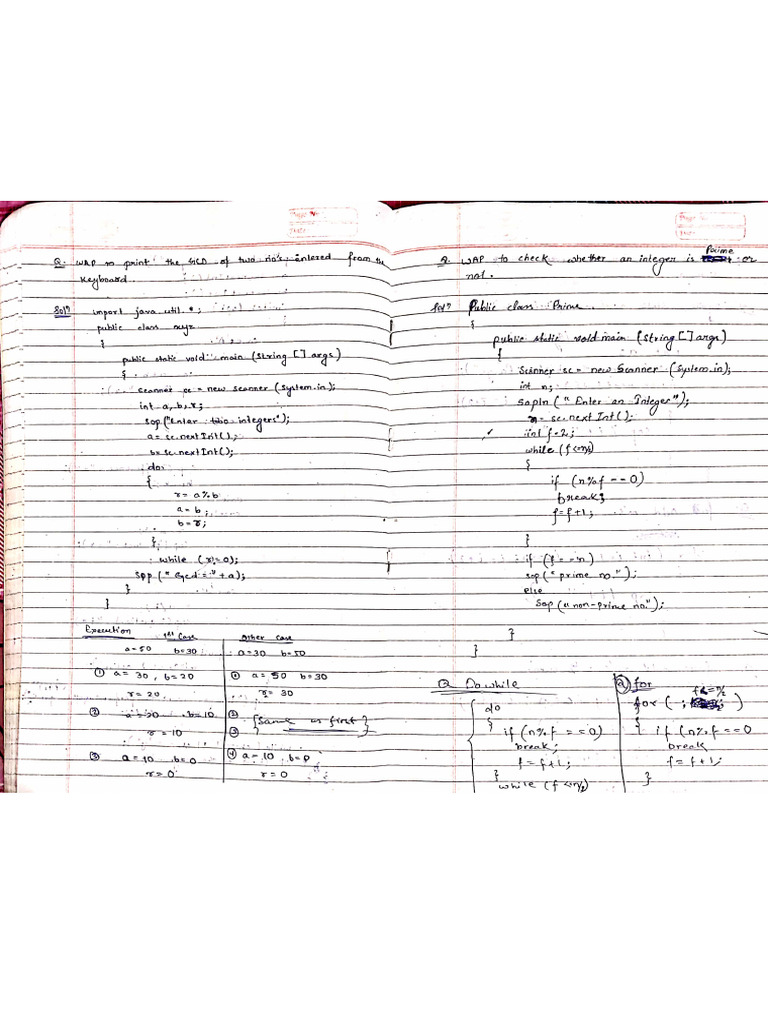 Page No.
Date
Q. WAP to print the GCD of two no's. entered from the
keyboard.
Solⁿ import java.util.*;
public class xyz
{
public static void main (String [] args)
{
Scanner sc = new Scanner (System.in);
int a, b, r;
Sop("Enter two integers");
a = sc.nextInt();
b = sc.nextInt();
do
{
r = a % b
a = b;
b = r;
}
while (r != 0);
Spp ("Gcd = " + a);
}
}
Execution
1st Case
a = 50 b = 30
① a = 30, b = 20
r = 20
② a = 20 b = 10
r = 10
③ a = 10 b = 0
r = 0
Other case
a = 30 b = 50
① a = 50 b = 30
r = 30
②
③ {Same as first}
④ a = 10 b = 0
r = 0
Page No.
Date
Prime
Q. WAP to check whether an integer is or
not.
Solⁿ Public class Prime.
{
public static void main (String [] args)
{
Scanner sc = new Scanner (System.in);
int n;
Sopln ("Enter an Integer");
n = sc.nextInt();
int f = 2;
while (f <= n/2)
{
if (n % f == 0)
break;
f = f + 1;
}
if (f == n)
sop ("prime no.");
else
Sop ("non-prime no.");
}
}
Q Do while
do
{
if (n % f == 0)
break;
f = f + 1;
}
while (f <= n/2
Q for
for ( ; ; )
{
if (n % f == 0
break
f = f + 1;
}